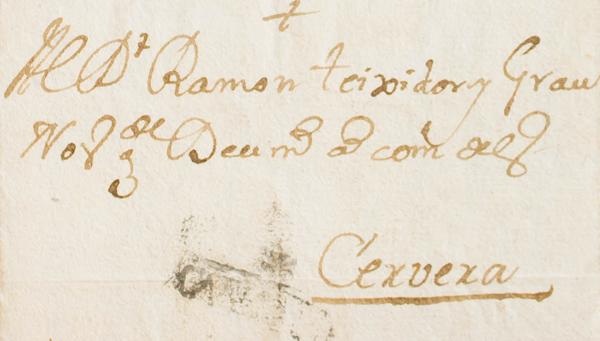 Al Dr Ramon teixidor y Grau
Nor de g Deu ms as com dels
Cervera